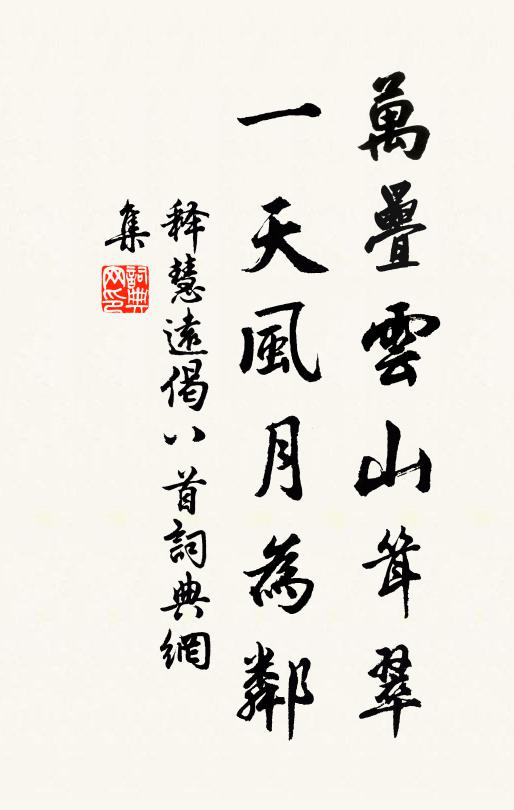 萬疊雲山聳翠
一天風月為鄰
释慧遠偈八首詞典網
集
詞典網印